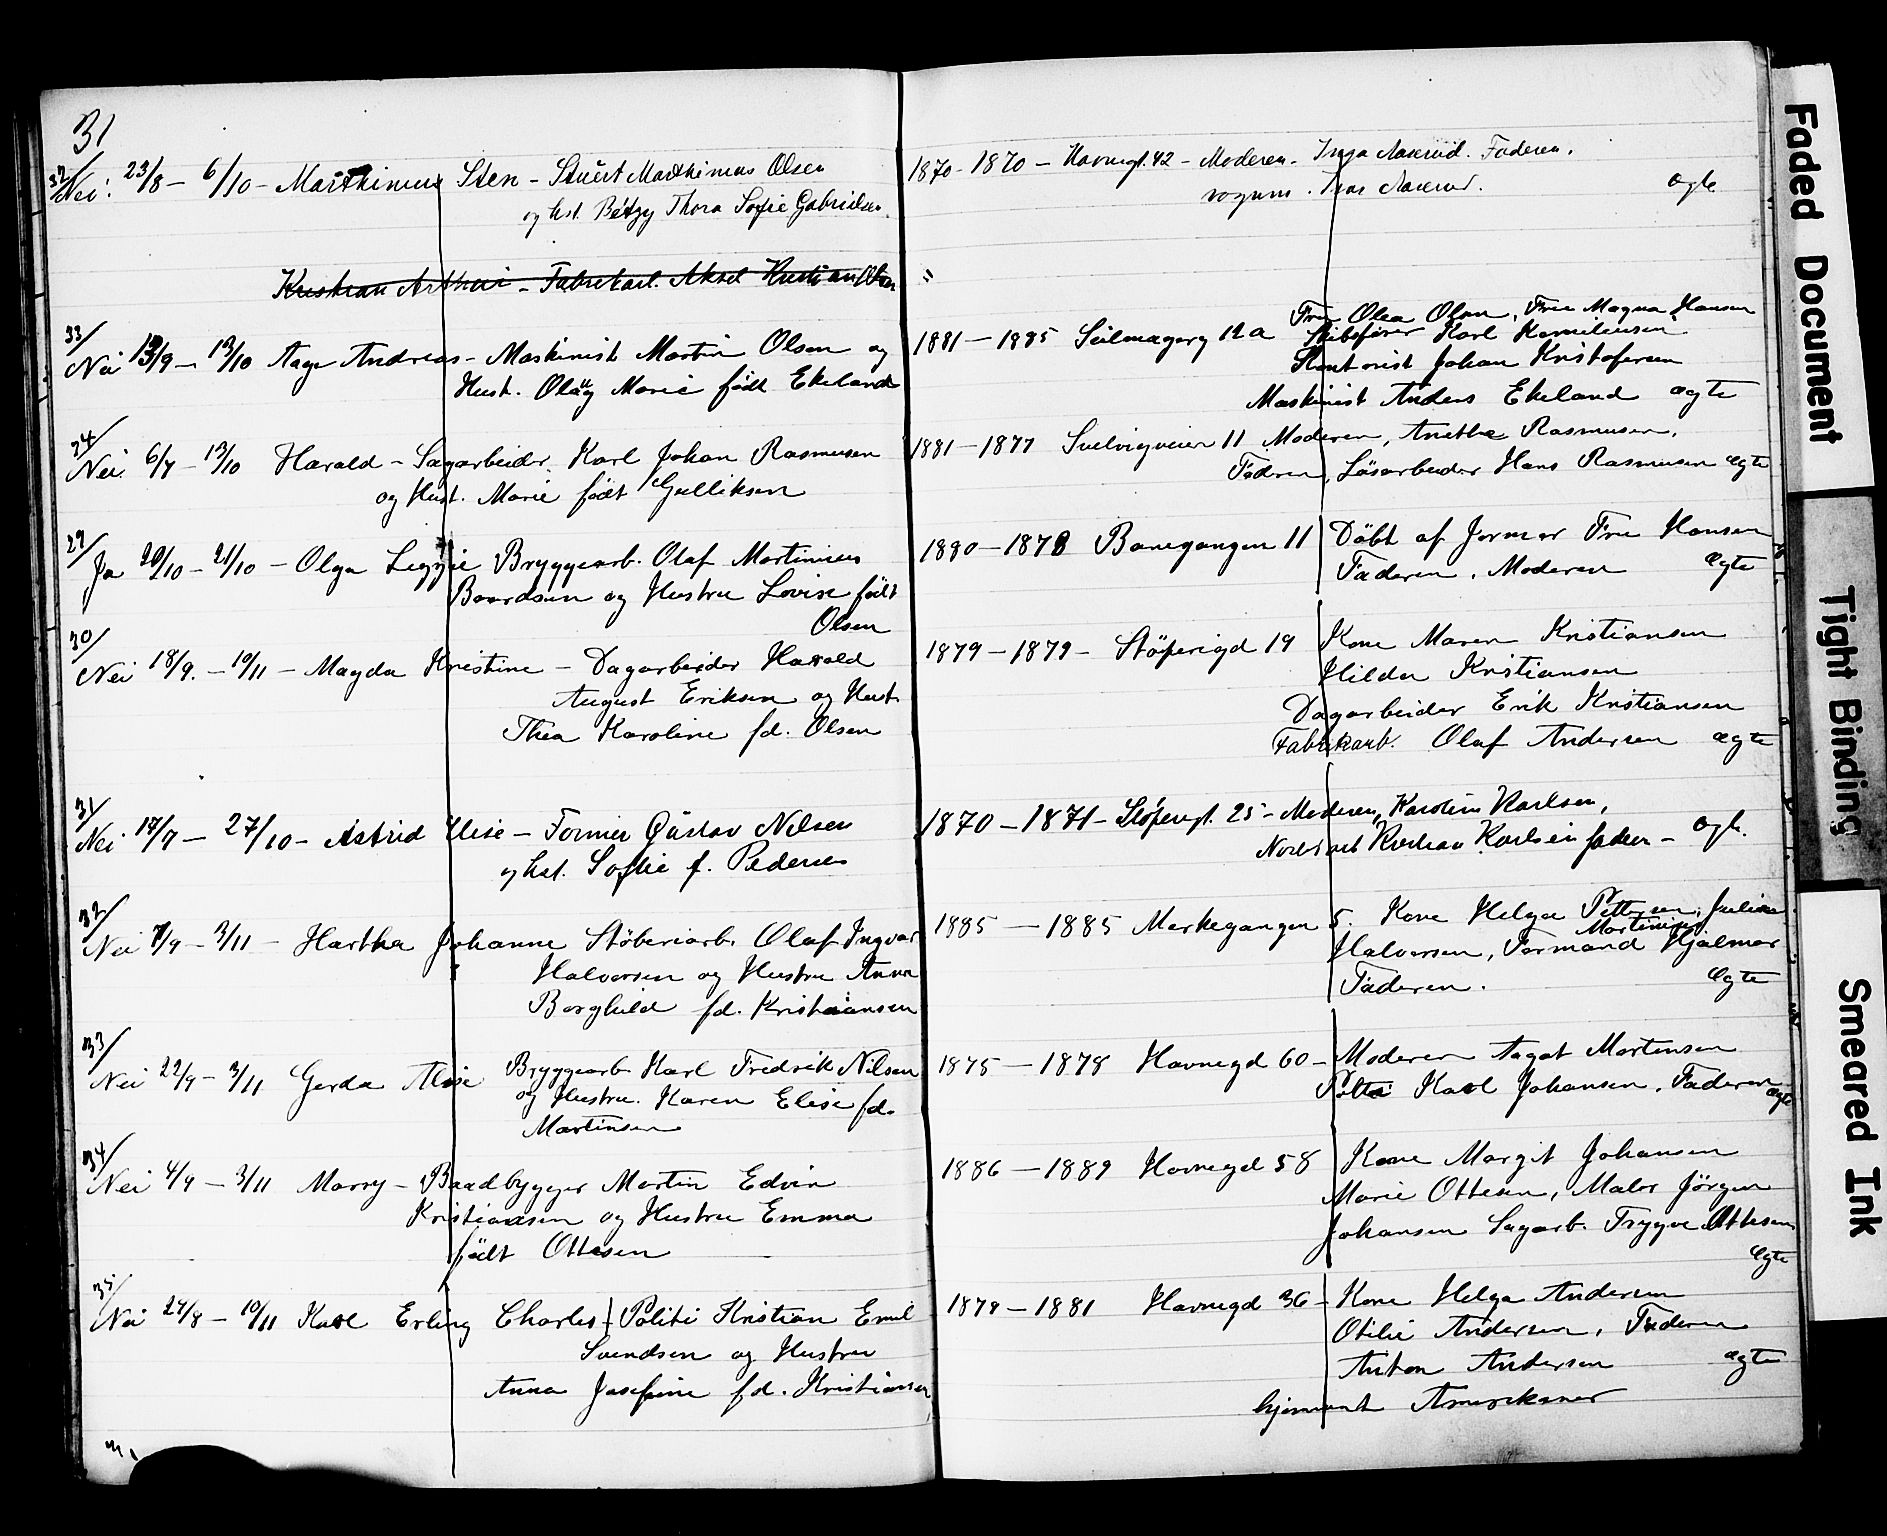 31
32/
Nei. 23/8 – 6/10 – Marthinius Sten – Stuert Marthinius Olsen 1870 - 1870 – Havnegt. 42 – Moderen – Inga Aaserud. Faderen.
og hst. Betzy Thora Sofie Gabrielsen. vognm. Aaserud. ægte
Kristian Arthur – Fabrikarb. Aksel Kristian Olsen "
33/
Nei 13/9 – 13/10 Aage Andreas – Maskinist Martin Olsen og 1881 – 1885 Seilmagerg 12a Fru Olea Olsen, Fru Magna Hansen
Skibsfører Karl Korniliussen
Hust. Olaug Marie født Ekeland Kontorist Johan Kristofersen
Maskinist Anders Ekeland ægte
24/
Nei 6/7 – 13/10 Harald – Sagarbeider Karl Johan Rasmusen 1881 – 1877 Svelvigveien 11 Moderen, Anethe Rasmusen,
og Hust. Marie født Gulliksen Fadren, Løsarbeider Hans Rasmusen ægte
29/
Ja 20/10 – 21/10 – Olga Bryggearb. Olaf Martinius 1880 – 1878 Banegangen 11 Döbt af Jormor Fru Hansen
Baardsen og Hustru Lovise født Faderen, Moderen ægte
Olsen
30/
Nei 18/9. – 10/11 – Magda Kristine – Dagarbeider Harald 1879 – 1879 – Støperigd 19 Kone Maren Kristiansen
August Eriksen og Hust. Hilda Kristiansen
Thea Karoline fd. Olsen Dagarbeider Erik Kristiansen
Fabrikarb. Olaf Andersen ægte
31/
Nei 17/7 – 27/10 – Astrid Elise – Former Gustav Nilsen 1870 – 1871 – Støperigt. 25 – Moderen, Karoline Karlsen,
og hst. Sofie f. Pedersen Kristian Karlsen faderen – ægte.
32/
Nei 7/9 – 3/11 – Hartha Johanne Støberiarb. Olaf Ingvar 1885 – 1885 Merkegangen 5. Kone Helga Pettersen, Juliane
Martinius
Halvorsen og Hustru Anna Halvorsen, Formand Hjalmar
Borghild fd. Kristiansen Faderen. ægte
33/
Nei 22/9 – 3/11 Gerda Alise Bryggearb. Karl Fredrik Nilsen 1875 – 1878 Havnegd 60 – Moderen Aagot Martensen
og Hustru. Karen Elise fd. Karl Johansen. Faderen ægte
Martinsen
34/
Nei 4/9 – 3/11 Marry – Baadbygger Martin Edvin 1886 – 1889 Havnegd 58 Kone Margit Johansen
Kristiansen og Hustru Emma Marie Ottesen, Maler Jörgen
født Ottesen Johansen Sagarb. Trygve Ottesen
ægte
35/
Nei 24/8 – 10/11 Karl Erling Charles Politi Kristian Emil 1878 – 1881 Havnegd 36 – Kone Helga Andersen
Svendsen og Hustru Otilie Andersen, Faderen
Anna Josefine fd. Kristiansen Anton Andersen ægte
hjemvent Amerikaner
Faded Document
Tight Binding
Smeared Ink